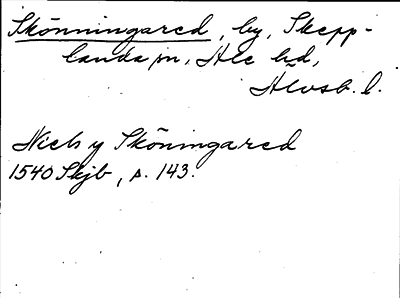 Skönningared, by, Skepp-
landa sn, Ale hd,
Älvsb. l.
Niels y Sköningared
1540 Skjb, s. 143.